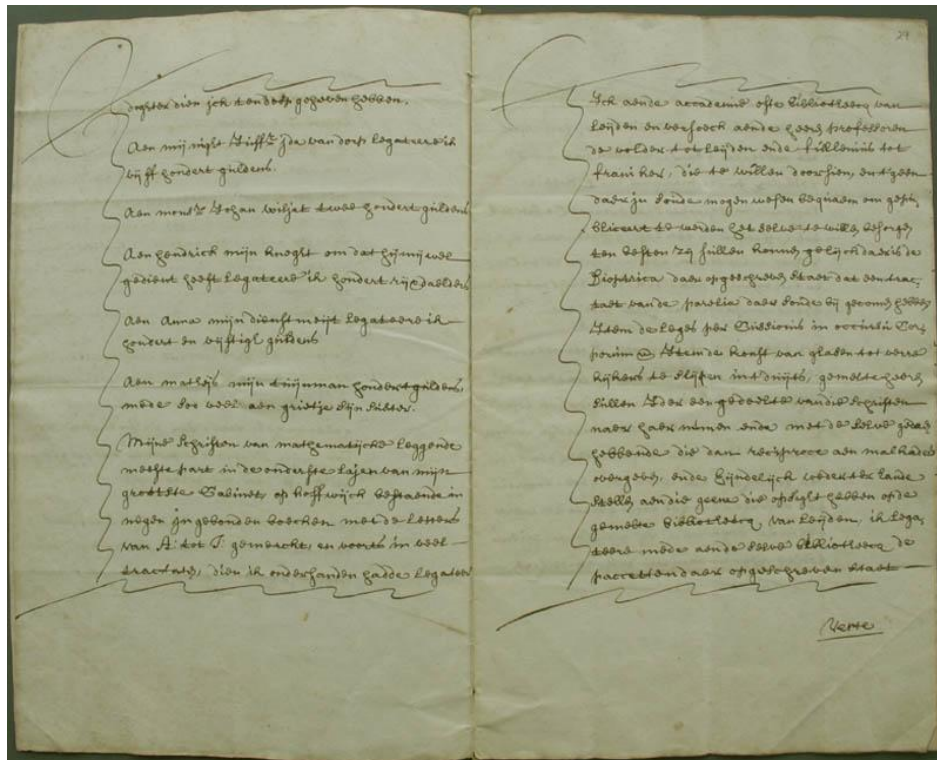 dight​er dien ick ten doop geheven hebben.
Aen mijn night Juffr. Ida van dorp legateere ik
vijff hondert guldens.
Aen monsr. Johan wiljet twee hondert guldens
Aen hendrick mijn kneght om dat hij mij wel
gedient heeft legateere ik hondert rijxdaelders
Aen Anna mijn dienstmeijt legateere ik
hondert en vijftigh guldens
Aen mathijs mijn tuijnman hondert guldens,
mede soo veel aen grietje sijn suster.
Mijne schriften van mathematijcke leggende
meeste part in de onderste lajen van mijn
grootste Cabinet, op hoffwijck bestaende in
negen ingebonden boecken met de letters
van A. tot I. gemerckt, en voorts in veel
tractaten, dien ik onderhanden hadde legateer
27
Ick aende accademie ofte bibliotheecq van
Leijden en versoeck aende heeren professoren
de volder tot leijden ende fullenius tot
franiker, die te willen doorsien, en 't geen
daer in soude mogen wesen bequaem om gepu
bliceert te werden het selve te willen besorgen
ten besten zij sullen konnen gelijck daer is de
Dioptrica daer op geschreven staet dat een trac,
taet van de parelia daer soude bij gecomen hebben
Item de leges per Diedionis in occursu Cor,
porum & Item de konst van glasen tot verre
kijkers te slijpen in't duijts, gemelte heeren
sullen Ider een gedeelte van die schriften
naer haer nemen ende met de selve gedaen
hebbende die dan reciproce aen malkander
overgeven, ende eijndelijck wederter hande
stellen aen die geene die opsight hebben op de
gemelte bibliotheecq van Leijden, ik lega,
teere mede aende selve bibliotheecq de
paccetten daer op geschreven staet
Verte